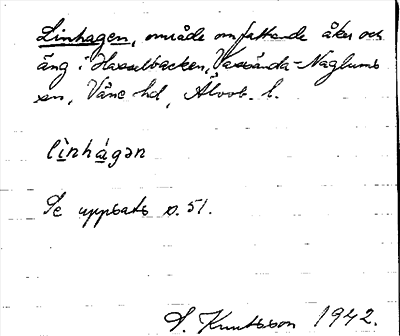 Linhagen, område omfattande åker och
äng i Hasselbacken, Vassända-Naglums
sn, Väne hd, Älvsb. l.
lìnhágən
Se uppsats s. 51.
S. Knutsson 1942.